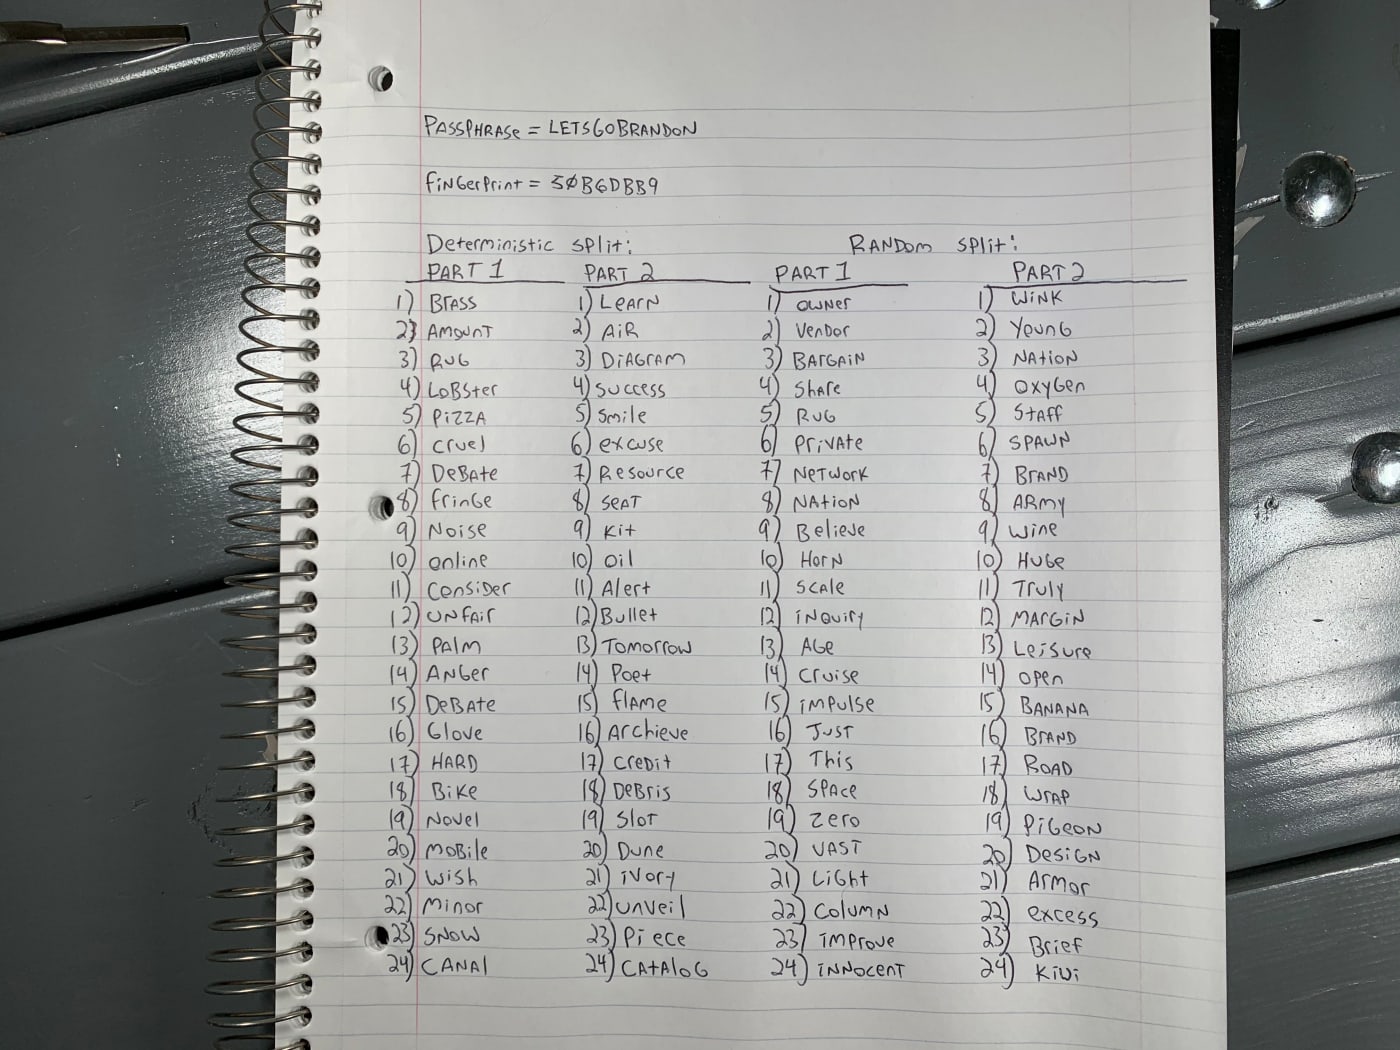 PASSPHRASE = LETSGOBRANDON
FiNGerPrint = 30B6DBB9
Deterministic split: RANDOM split:
PART 1 PART 2 PART 1 PART 2
1) BrASS 1) LeArN 1) OWNer 1) WiNK
2) AMOUNT 2) AiR 2) VeNDor 2) YouNG
3) RUG 3) DiAGrAM 3) BARGAiN 3) NAtioN
4) LoBSter 4) Success 4) ShAre 4) OxyGen
5) PiZZA 5) Smile 5) RUG 5) StAff
6) cruel 6) excuse 6) PrivAte 6) SPAWN
7) DeBAte 7) Resource 7) NeTWork 7) BrAND
8) fringe 8) SeAT 8) NAtioN 8) ARMy
9) Noise 9) Kit 9) Believe 9) Wine
10) online 10) oil 10) HorN 10) HuGe
11) CONSiDer 11) Alert 11) SCAle 11) Truly
12) UNFAir 12) Bullet 12) iNQuiry 12) MArGiN
13) PAlM 13) Tomorrow 13) AGe 13) LeiSure
14) ANGer 14) Poet 14) Cruise 14) open
15) DeBAte 15) flAme 15) imPulse 15) BANANA
16) Glove 16) Archieve 16) JuST 16) BrAND
17) HARD 17) CreDit 17) This 17) ROAD
18) BiKe 18) DeBris 18) SPAce 18) WrAP
19) Novel 19) SloT 19) Zero 19) PiGeoN
20) MOBile 20) Dune 20) VAST 20) DeSiGN
21) Wish 21) iVory 21) LiGht 21) ArMor
22) Minor 22) unveil 22) ColuMN 22) excess
23) SNOW 23) Piece 23) iMProve 23) Brief
24) CANAl 24) CAtAloG 24) iNNoceNT 24) Kiwi